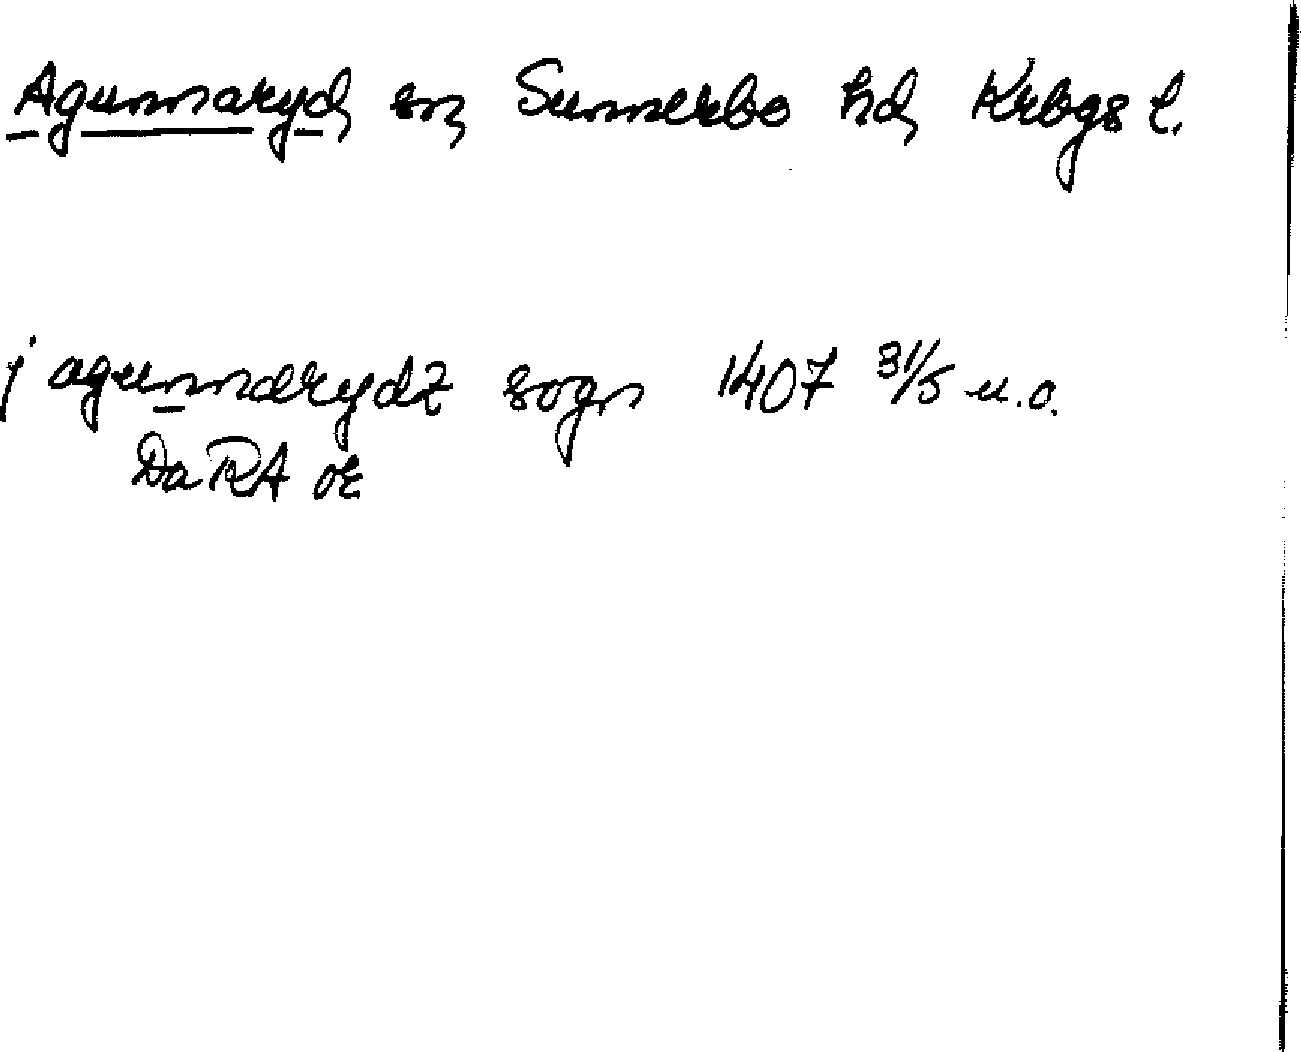 Agunnaryd, sn, Sunnerbo hd, Krbgs l.
j agunnarydz sogn 1407 31/5 u.o.
Da RA or